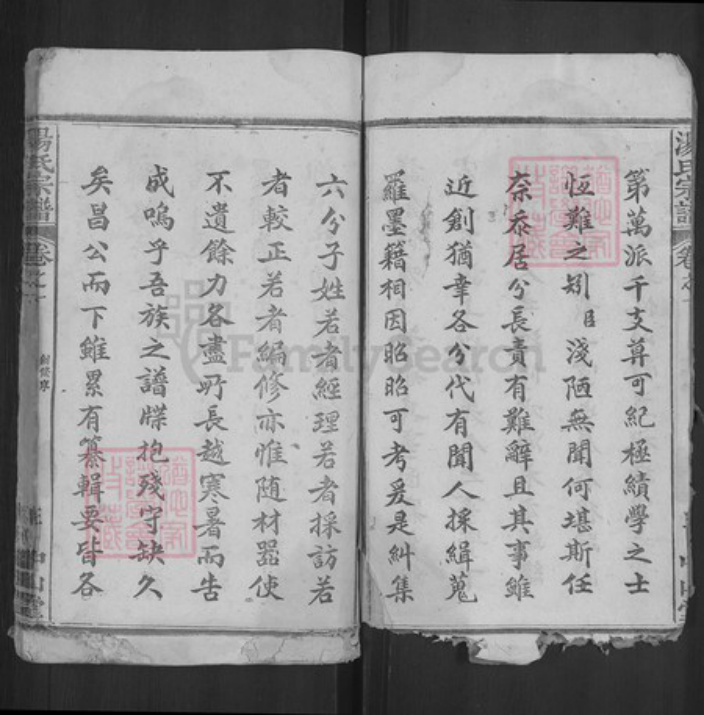 第萬派千支算可紀極績學之士
恆難之矧 淺陋無聞何堪斯任
柰忝居分長責有難辭且其事雖
近創猶幸各分代有聞人採緝蒐
羅墨籍相因昭昭可考爰是糾集
六分子姓若者經理若者採訪若
者較正若者編修亦惟随材器使
不遺餘力各盡所長越寒暑而告
成嗚乎吾族之譜牒抱殘守缺久
矣昌公而下雖累有纂輯要皆各
湯氏宗譜
卷之
湯氏宗譜
卷之
創修序
中山堂
FamilySearch